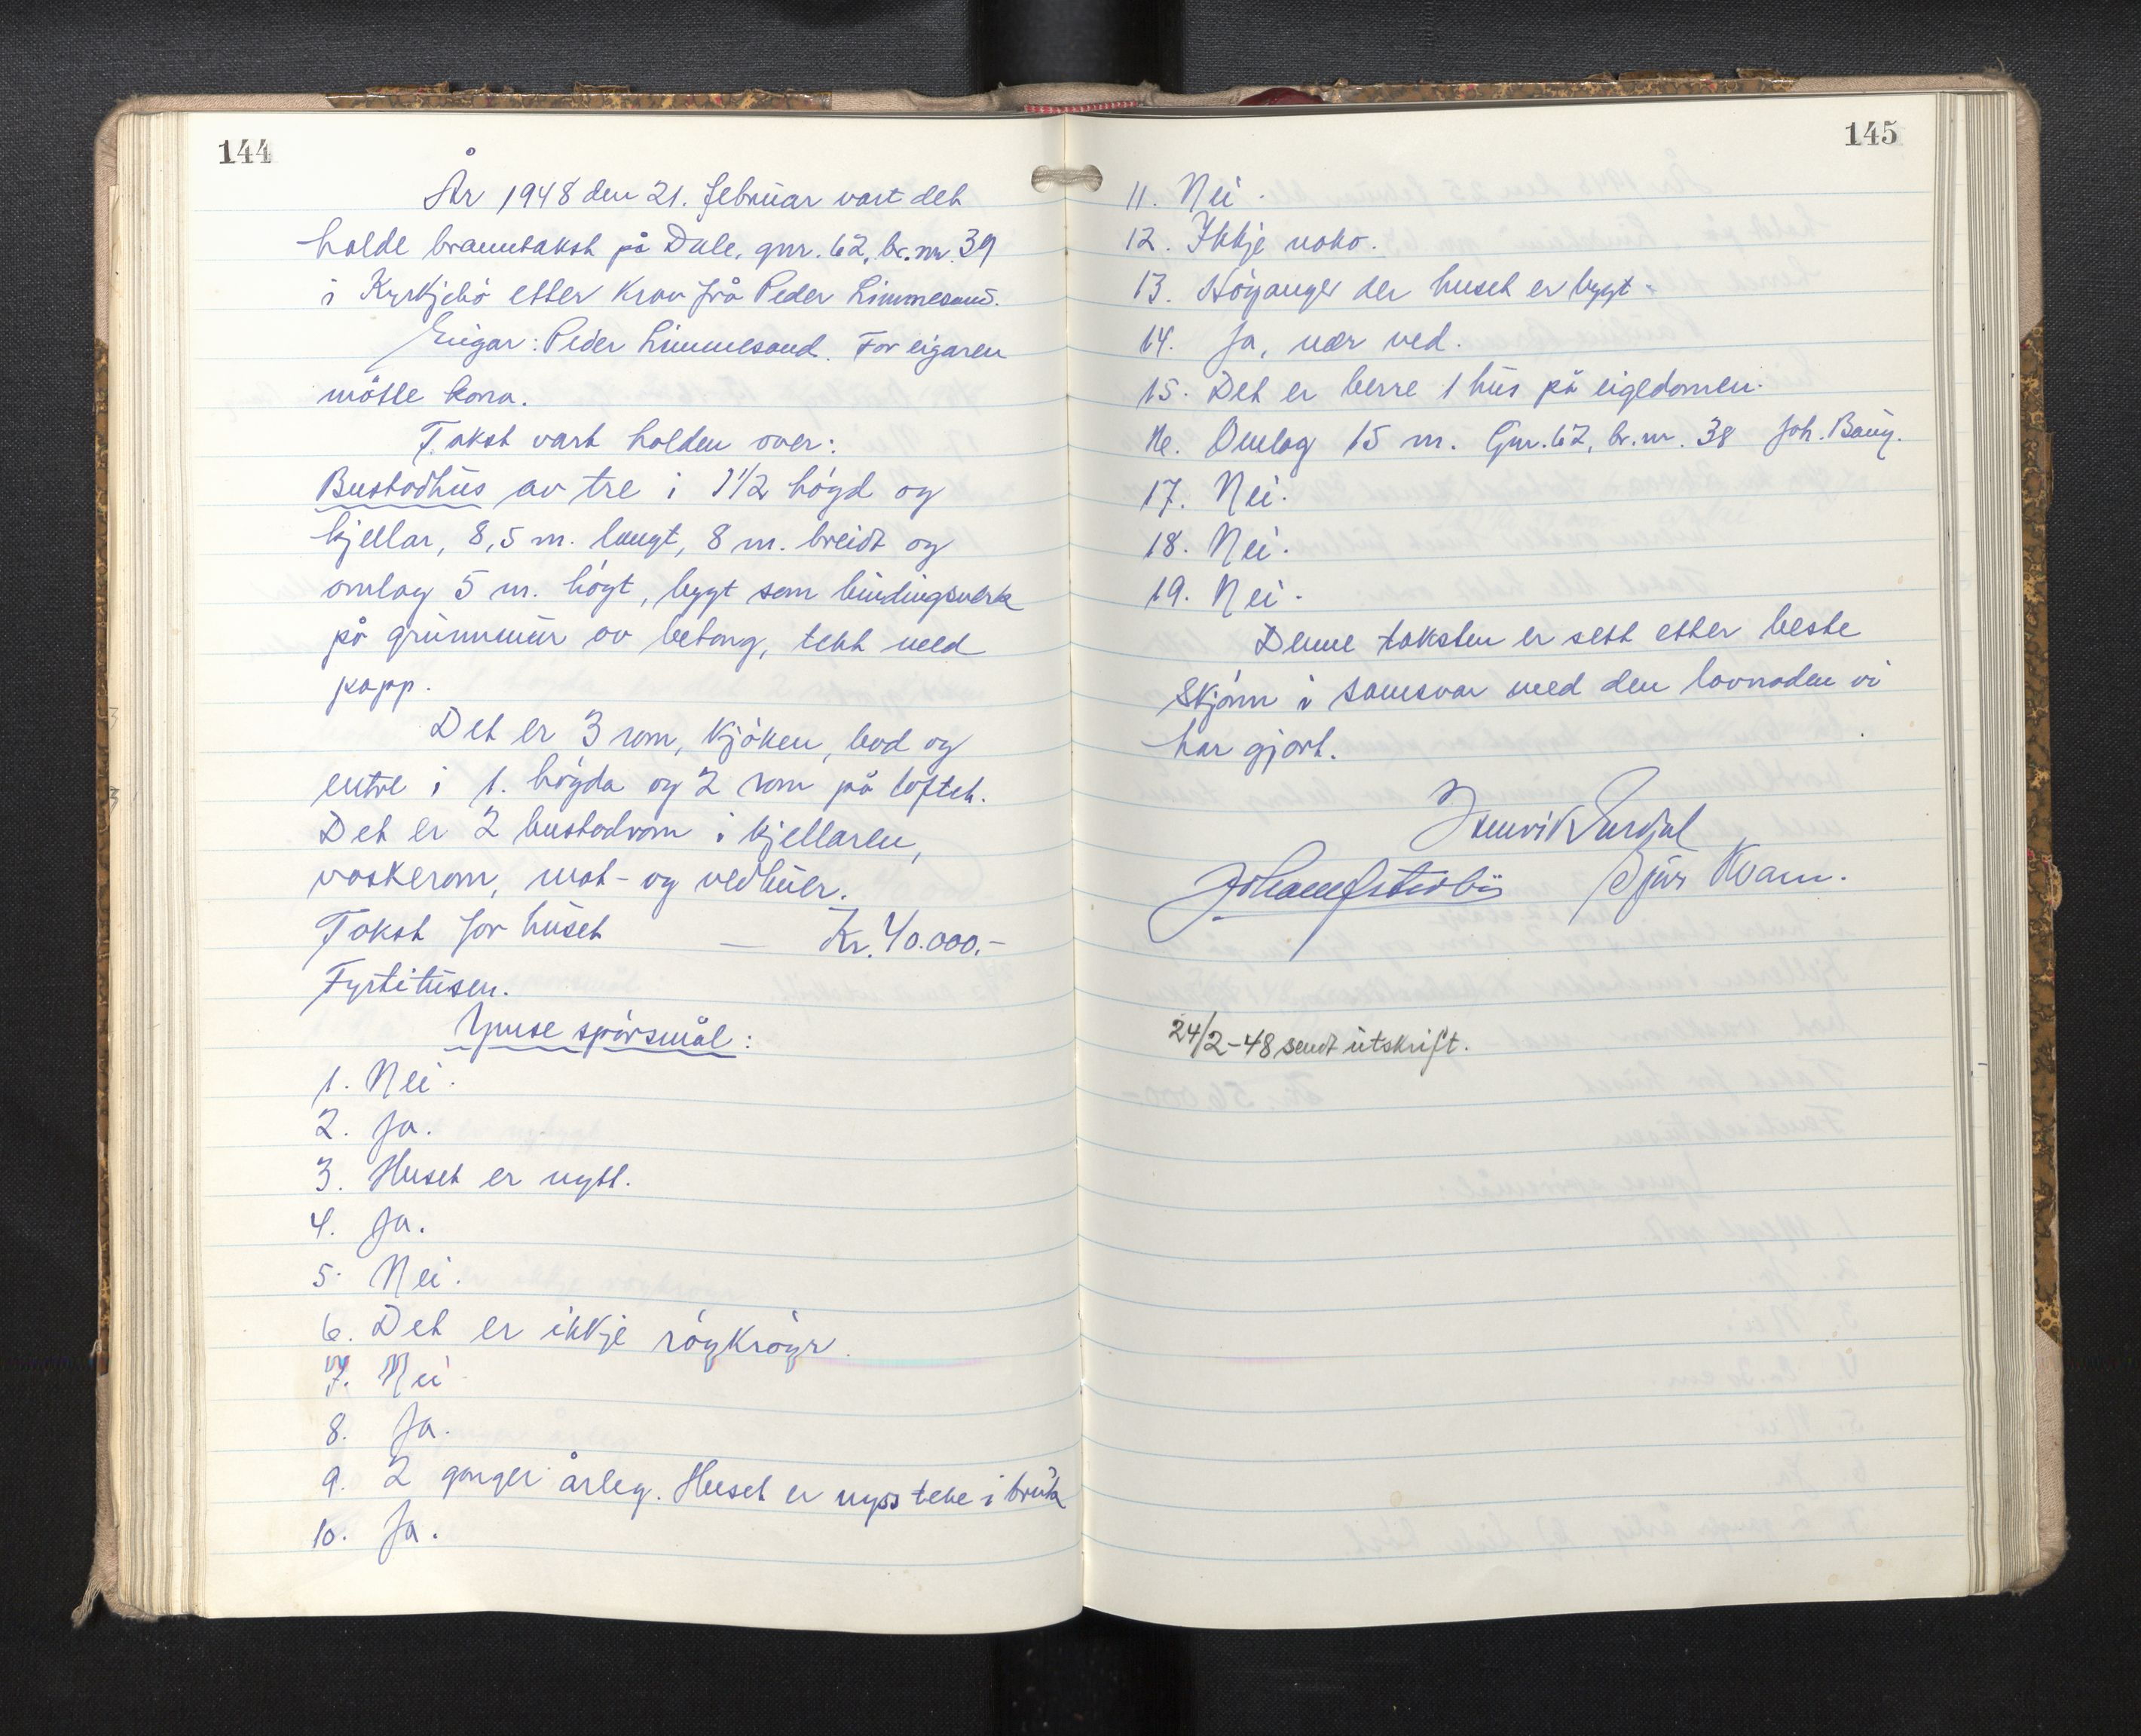 144
År 1948 den 21. februar vart det
halde branntakst på Dale, gnr. 62, br. nr. 39
i Kyrkjebö etter krav frå Peder Limmesand.
Eigar: Peder Limmesand. For eigaren
mötte kona.
Takst vart halden over:
Bustadhus av tre i 1 1/2 högd og
kjellar, 8,5 m. langt, 8 m. breidt og
omlag 5 m. högt, bygt som bindingsverk
på grunnmur av betong, tekt med
papp.
Det er 3 rom, kjöken, bod og
entre i 1. högda og 2 rom på loftet.
Det er 2 bustadrom i kjellaren,
vaskerom, mat- og vedbuer.
Takst for huset — Kr. 40.000.-
Fyrtitusen.
Ymse spörsmål:
1. Nei.
2. Ja.
3. Huset er nytt.
4. Ja.
5. Nei.
6. Det er ikkje röykröyr.
7. Nei
8. Ja.
9. 2 gonger årleg. Huset er nyss teke i bruk
10. Ja.
145
11. Nei.
12. Ikkje noko.
13. Höyanger der huset er bygt.
14. Ja, nær ved.
15. Det er berre 1 hus på eigedomen.
16. Omlag 15 m. Gnr. 62, br. nr. 38 Joh. Baug.
17. Nei.
18. Nei.
19. Nei.
Denne taksten er sett etter beste
skjönn i samsvar med den lovnaden vi
har gjort.
Sjur Kvam.
24/2-48 sendt utskrift.